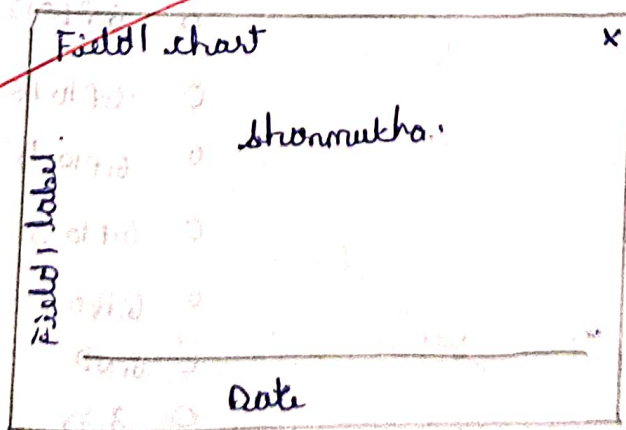 Field 1 chart x
Shanmukha.
Field 1 label.
Date